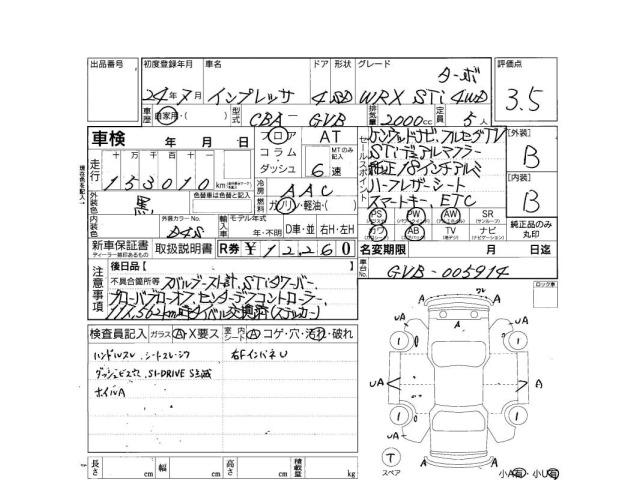 出品番号 初度登録年月 車名 ドア 形状 グレード 評価点
ターボ
24年7月 インプレッサ 4 SD WRX STi 4WD 3.5
車歴 自家用・( ) 型式 CBA-GVB 排気量 2000cc 定員 5人
車検 年 月 日 フロア AT セールスポイント ケンウッドナビ、フルセグTV 【外装】
コラム・ダッシュ MTのみ記入 6速 STiデュアルマフラー B
走行 十 万 千 百 十 一 純正18インチアルミ
153010 km 冷房 AAC ハーフレザーシート 【内装】
外装色 黒 色替車は色替と記入 燃料 ガソリン・軽油・( ) スマートキー、ETC B
外装カラーNo. D4S 輸入車 モデル年式 年・不明 D車・並 右H・左H PS PW AW SR
内装色 カワ AB TV ナビ 純正品のみ丸印
新車保証書 取扱説明書 R券 ¥12260 名変期限 月 日迄
ディーラー捺印あるもの
注意事項 後日品【 】 車台No. GVB-005914
不具合箇所等 スバルブースト計、STiタワーバー、
ブローバブローオフ、センターデフコントローラー
111,562km時タイベル交換済(ステッカー)
ロック車
検査員記入 ガラス A・X要ス 室内シート A コゲ・穴・汚れ・破れ
ハンドルスレ、シートスレ・シワ 右FインパネU
ダッシュビス穴、SI-DRIVE S点滅
ホイルA
長さ cm 幅 cm 高さ cm 積載量 kg
ワレ
A A
UA UA
1 1
UA A
1 1
UA A
T A A
スペア 小A有・小U有